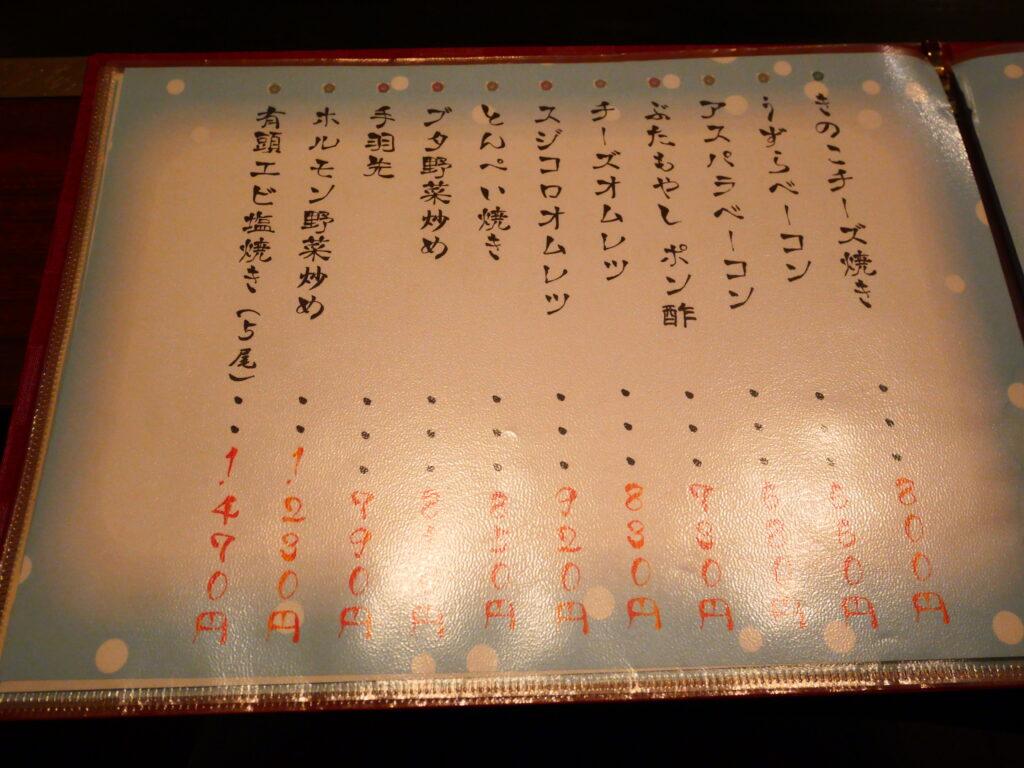 きのこチーズ焼き・・・800円
うずらベーコン・・・円
アスパラベーコン・・・円
ぶたもやし ポン酢・・・780円
チーズオムレツ・・・830円
スジコロオムレツ・・・920円
とんぺい焼き・・・円
ブタ野菜炒め・・・円
手羽先・・・790円
ホルモン野菜炒め・・1230円
有頭エビ塩焼き(5尾)・・1470円